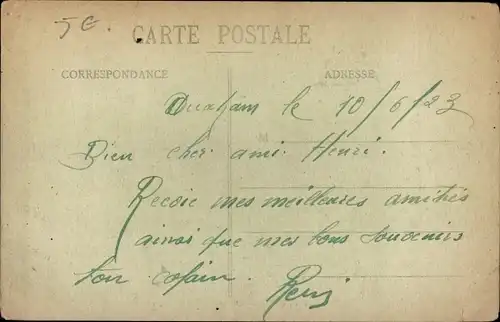 5€.
CARTE POSTALE
CORRESPONDANCE
ADRESSE
le 10/6/23
Bien cher ami Henri.
Recois mes meilleures amitiés
ainsi que mes bons souvenirs
ton copain.